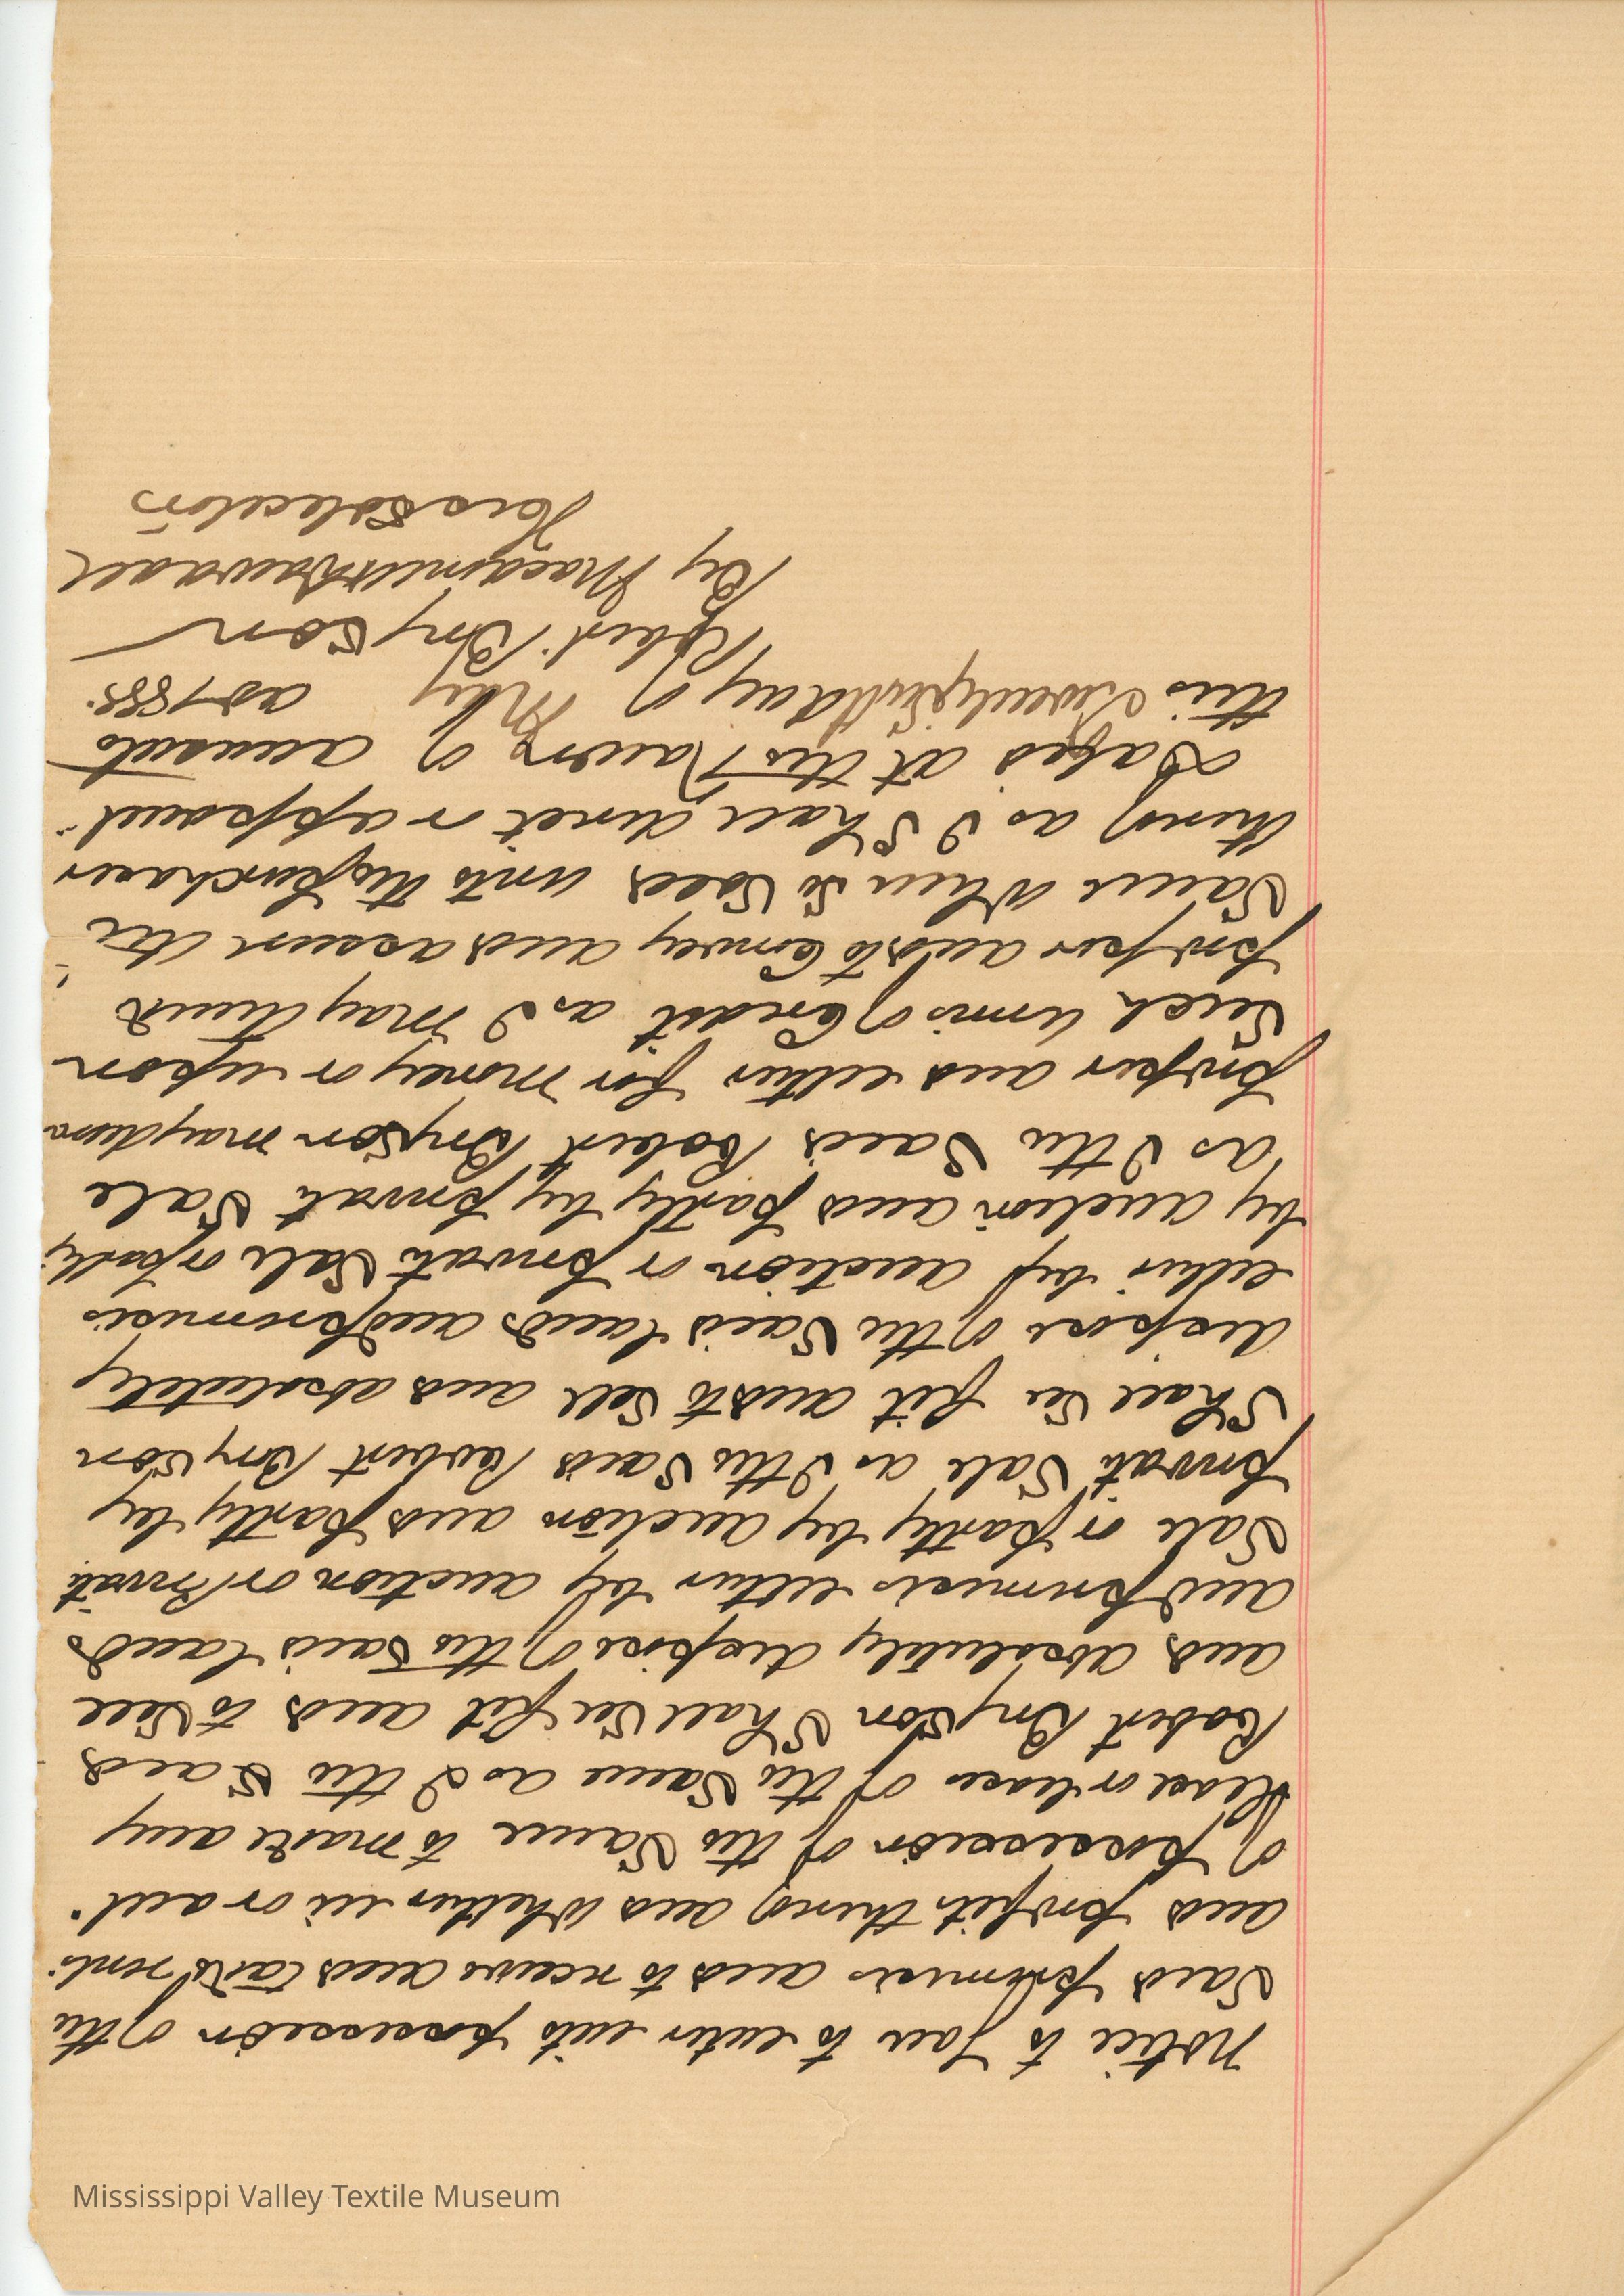 notice to you to enter into possession of the
Said premises and to receive and take rents
and profits thereof and whether in or out
of possession of the Same to make any
lease or leases of the Same as I the Said
Robert Bryson Shall See fit and to Sell
and absolutely dispose of the Said lands
and premises either by auction or Private
Sale or partly by auction and partly by
private Sale as I the Said Robert Bryson
Shall See fit and to Sell and absolutely
dispose of the Said lands and premises
either by auction or private Sale or partly
by auction and partly by private Sale
as I the Said Robert Bryson may deem
proper and either for money or upon
Such terms of Credit as I may deem
proper and to Convey and assure the
Same When So Sold unto the purchaser
thereof as I Shall direct or appoint.
Dated at the Town of Almonte
this day of May AD 1888.
Robert Bryson
By
His Solicitors
Mississippi Valley Textile Museum